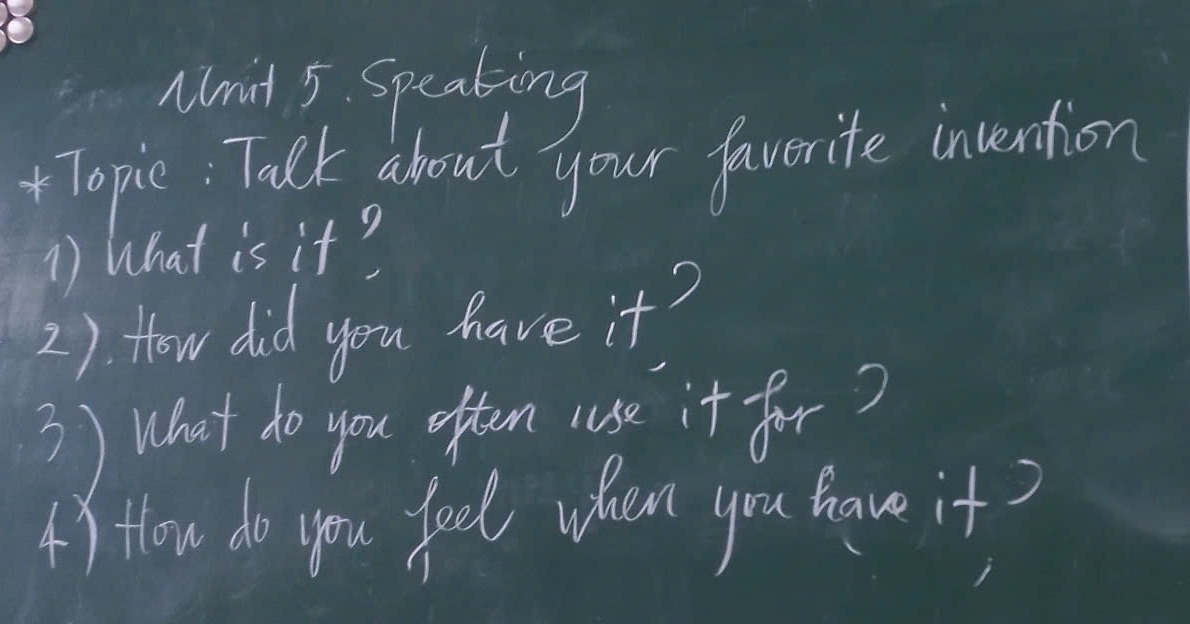 Unit 5. Speaking
* Topic : Talk about your favorite invention
1) What is it?
2). How did you have it?
3) What do you often use it for?
4) How do you feel when you have it?